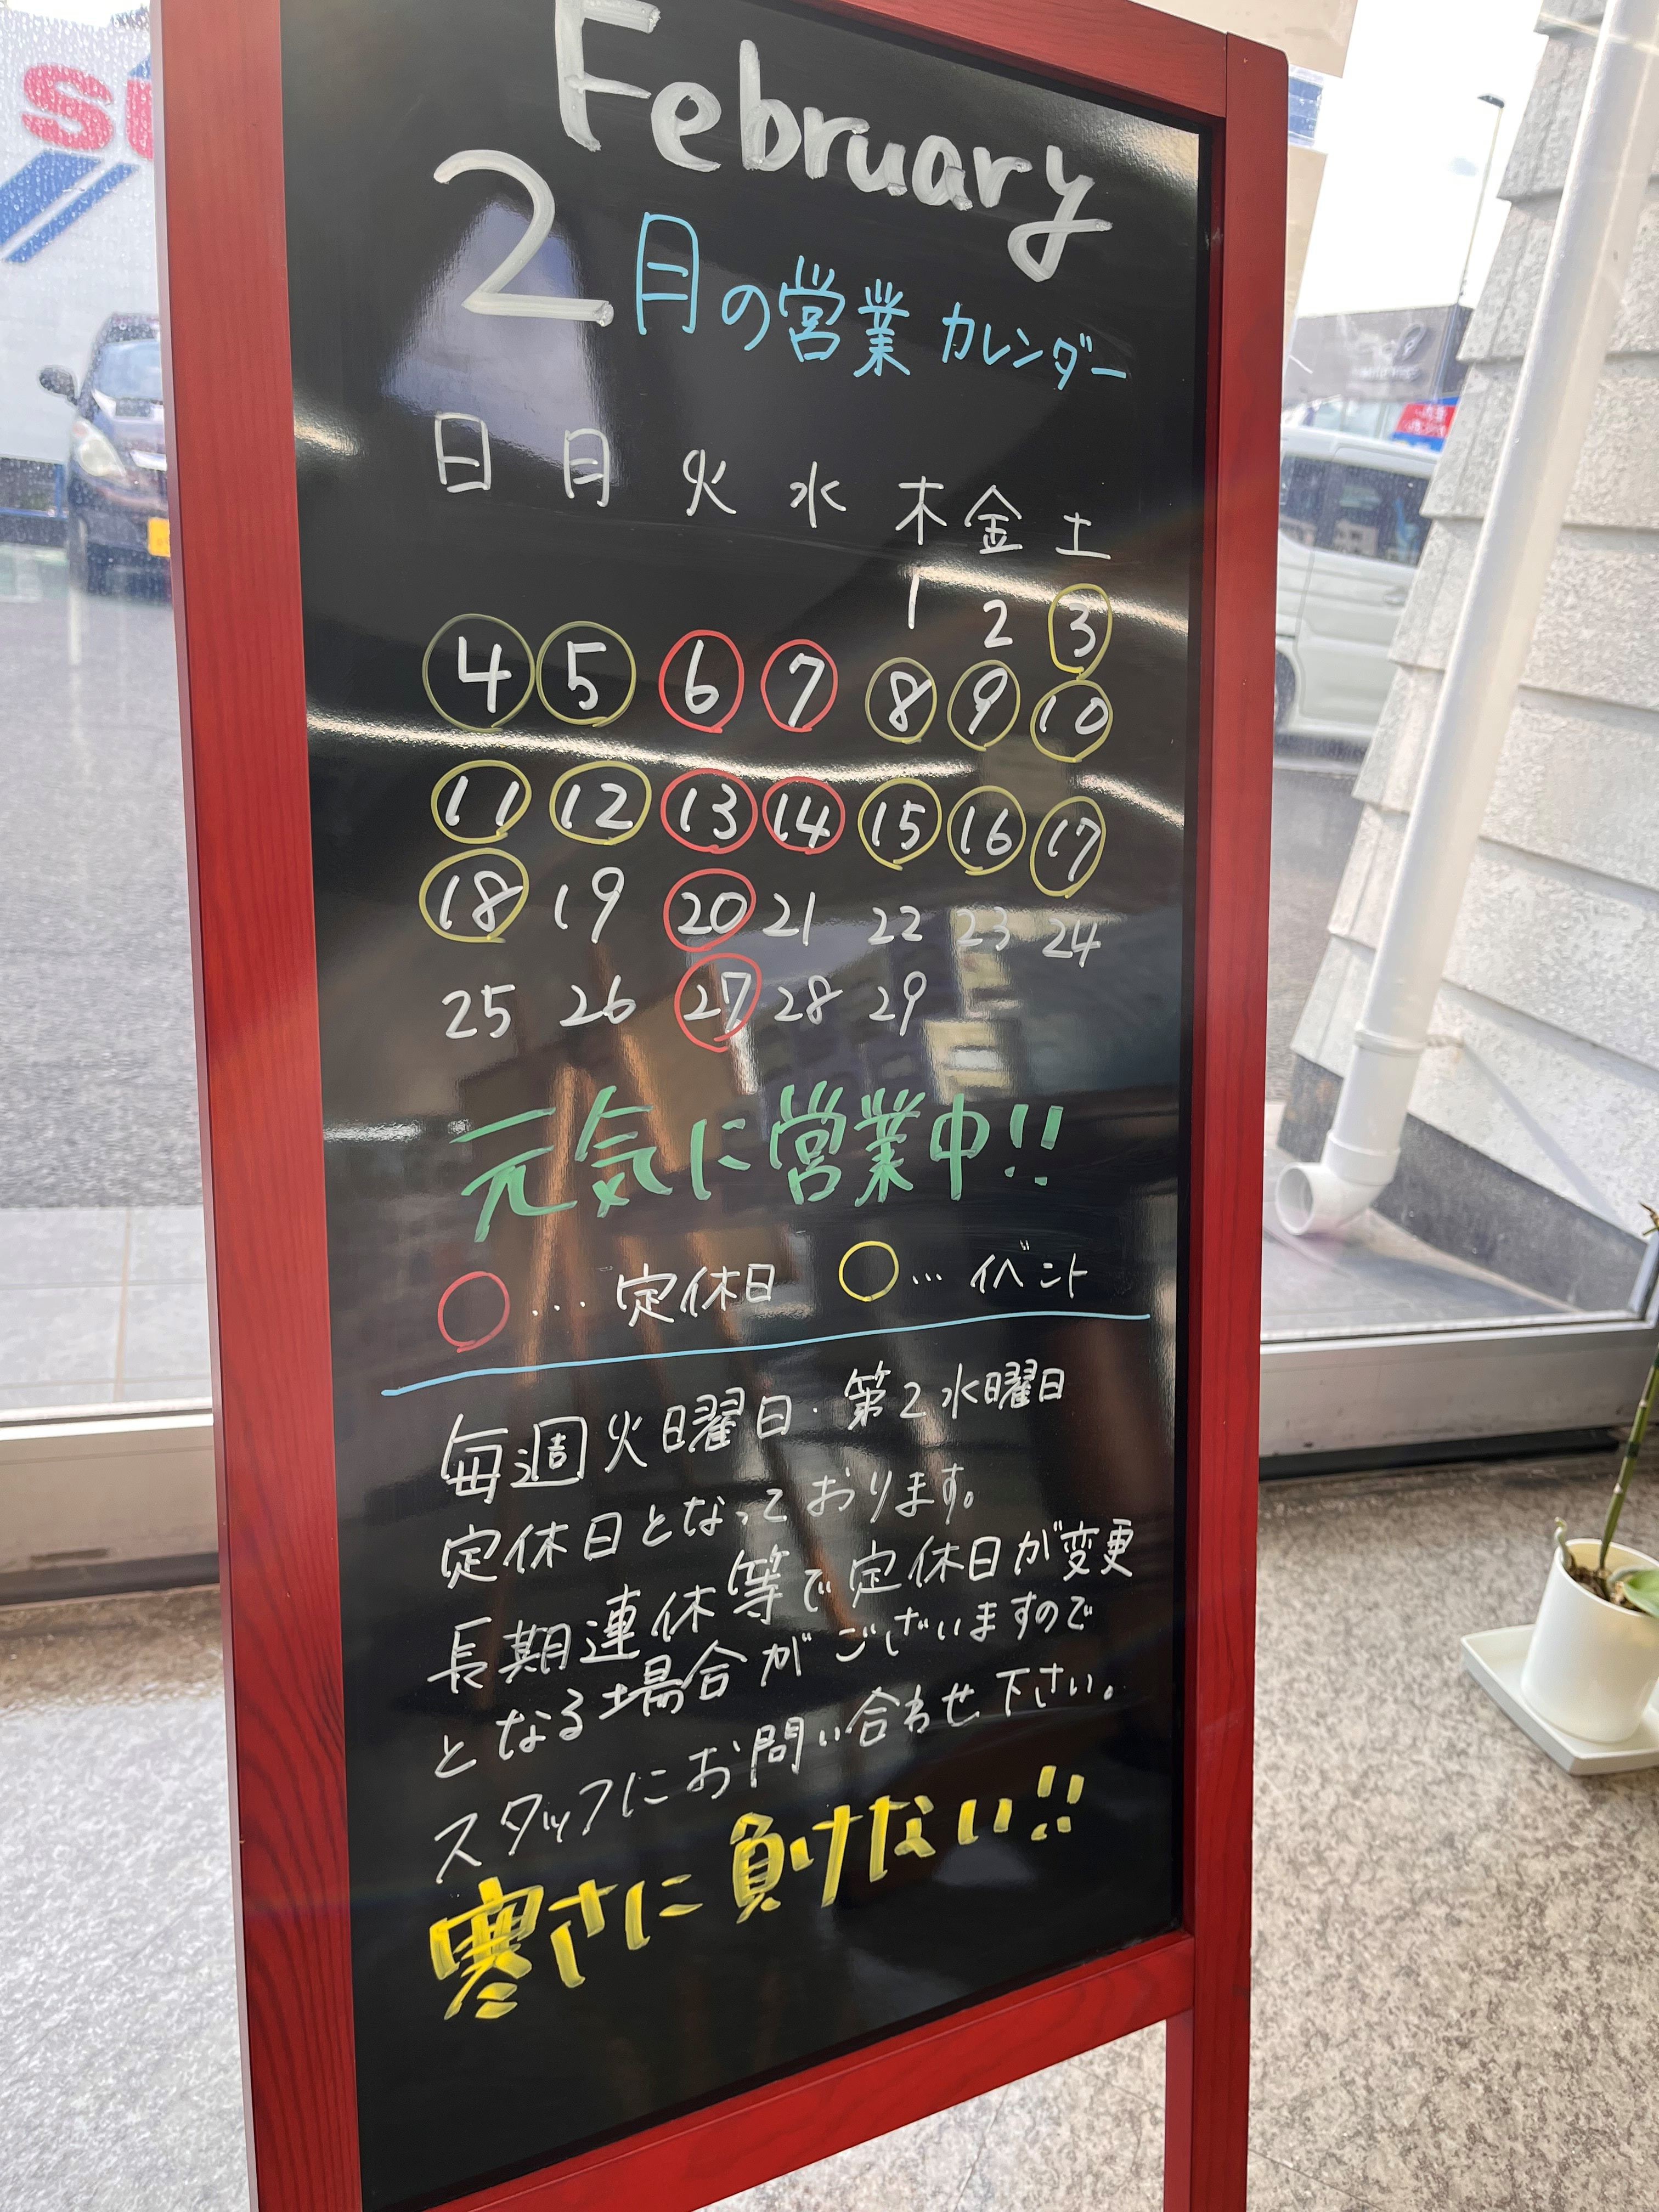 February
2月の営業カレンダー
日 月 火 水 木 金 土
1 2 3
4 5 6 7 8 9 10
11 12 13 14 15 16 17
18 19 20 21 22 23 24
25 26 27 28 29
元気に営業中!!
○… 定休日 ○… イベント
毎週火曜日・第2水曜日
定休日となっております。
長期連休等で定休日が変更
となる場合がございますので
スタッフにお問い合わせ下さい。
寒さに負けない!!